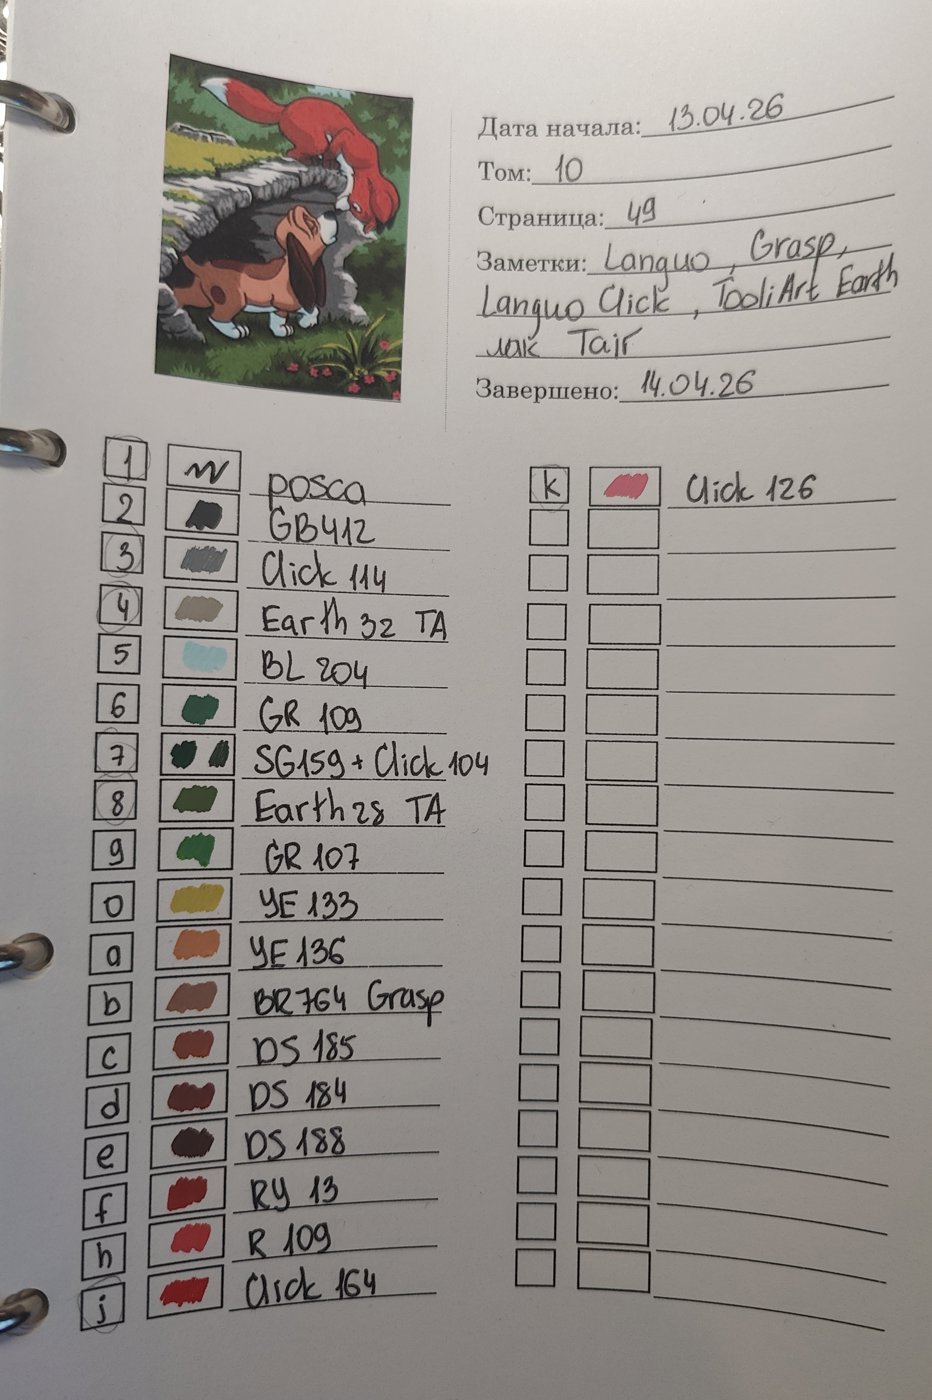 Дата начала: 13.04.26
Том: 10
Страница: 49
Заметки: Languo, Grasp,
Languo Click, TooliArt Earth
лак Tair
Завершено: 14.04.26
1 posca
2 GB412
3 Click 114
4 Earth 32 TA
5 BL 204
6 GR 109
7 SG159 + Click 104
8 Earth 28 TA
9 GR 107
0 YE 133
a YE 136
b BR764 Grasp
c DS 185
d DS 184
e DS 188
f RY 13
h R 109
j Click 164
k Click 126